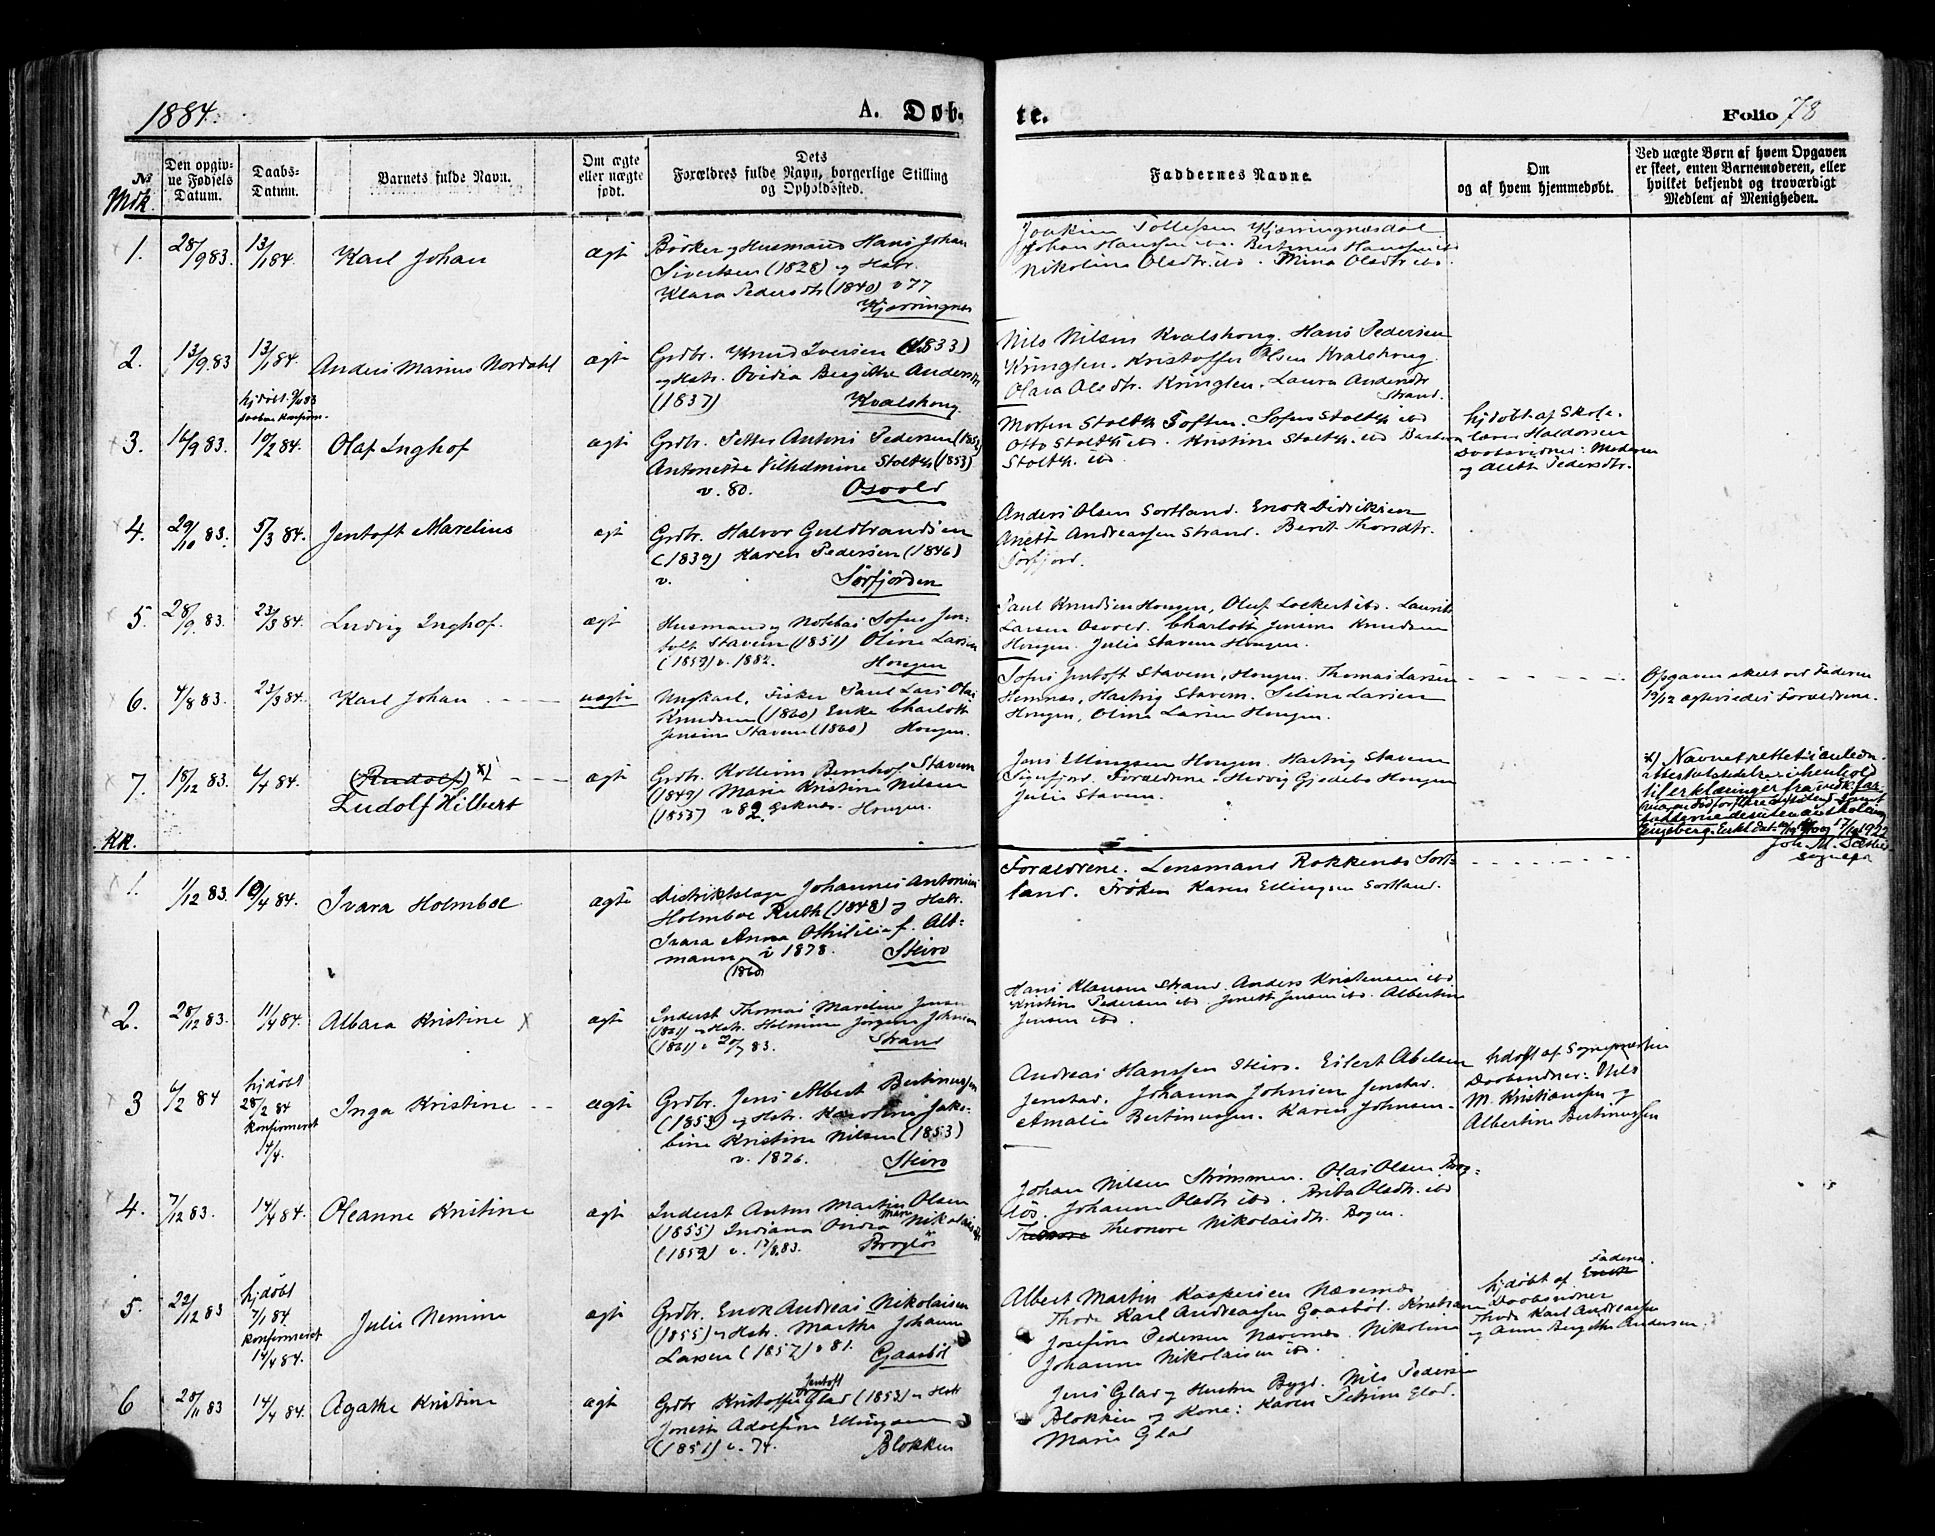 1884.
A. Døb-
te.
Folio 78
№
Mdk.
Den opgiv-
ne Fødsels
Datum.
Daabs-
Datum.
Barnets fulde Navn.
Om ægte
eller uægte
født.
Dets
Forældres fulde Navn, borgerlige Stilling
og Opholdssted.
Faddernes Navne.
Om
og af hvem hjemmedøbt.
Ved uægte Børn af hvem Opgaven
er skeet, enten Barnemoderen, eller
hvilket bekjendt og troværdigt
Medlem af Menigheden.
1. 28/9 83. 13/1 84. Karl Johan ægte
Husmand Hans Johan
Sivertsen (1828) og Hstr.
Klara Pedersdtr (1840) v 77
Kjørringnes
Joakim Tollefsen Kjørringnesdal
Johan Hanssen ibd. Bertinus Hanssen ibd
Nikolina Olsdtr. ibd. Mina Olsdtr ibd.
2. 13/9 83 13/1 84. Anders Marius Nordahl ægte
Grdbr. Knud Iversen (1833)
og Hstr. Ovidia Bergithe Andersdtr
(1837) Kvalshoug
Nils Nilsen Kvalshoug. Hans Pedersen
Kringlen. Kristoffer Olsen Kvalshoug.
Olava Olsdtr. Kringlen. Laura Andersdtr
Strand.
3. 16/9 83. 10/2 84. Olaf Inghof ægte
Grdbr. Petter Antoni Pedersen (1852)
Antonette Vilhelmine Stoltz (1853)
v. 80. Osvold
Morten Stoltz Toften. Sofus Stoltz ibd
Otto Stoltz ibd. Kristine Stoltz. ibd
Stoltz. ibd.
hjdøbt af Skole-
lærer Haldorsen
Daabsvidner: Moderen
og Alette Pedersdtr.
4. 29/10 83. 5/3 84. Jentoft Marelius ægt
Grdbr. Halvor Guldbrandsen
(1839) Karen Pedersen (1846)
v. Sørfjorden
Anders Olsen Sortland. Enok Didriksen
Anette Andreassen Strand. Berit Thorsdtr.
Sørfjord.
5. 28/9 83. 23/3 84. Ludvig Inghof. ægt
Husmand og Notebas Sofus Jen-
toft Stavem (1851) Oline Larsen
(1859) v. 1882. Hougen
Paul Knudsen Hougen, Oluf Lockert ibd. Laurits
Larsen Osvold. Charlotte Jensine Knudsen
Hougen. Julie Stavem Hougen.
6. 4/8 83. 23/3 84. Karl Johan uægte
Ungkarl, Fisker Paul Lars Olai
Knudsen (1860) Enke Charlotte
Jensine Stavem (1860) Hougen.
Sofus Jentoft Stavem, Hougen. Thomas Larsen
Hemnes, Hartvig Stavem. Seline Larsen
Hougen, Oline Larsen Hougen.
Opgaven skeet ved Faderen
7. 18/12 83. 6/4 84. (Rudolf) x)
Ludolf Hilbert
ægte
Grdbr. Kolbein Bernhof Stavem
(1849) Marie Kristine Nilsen
(1853) v 82. Hougen.
Jens Ellingsen Hougen. Hartvig Stavem
Forældrene. Hedvig Gjedebo Hougen
Julie Stavem.
x) Navnet rettet i anledn.
i henhold
til erklæringer fra
Joh. M.
Sognepr
KK.
1. 1/12 83 10/4 84. Ivara Holmboe ægte
Distriktslæge Johannes Antonius
Holmboe Ruth (1848) og Hstr.
Ivara Anna Othilie f. Alt-
mann v 1878. Steiro
(1860)
Forældrene. Lensmand Rokkenes Sort-
land. Frøken Karen Ellingsen Sortland.
2. 28/12 83. 11/4 84. Albara Kristine ægte
Inderst Thomas Marelius Jensen
(1861) og Hstr. Jørgine Johnsen
(1861) v. 83. Strand
Hans Klausen Strand. Anders Kristensen ibd
Kristine Pedersen ibd. Jonette Jensen ibd. Albertine
Jensen ibd.
3 6/2 84
hjdøbt
28/2 84
Konfirmeret
14/4.
Inga Kristine ægte
Grdbr. Jens Albert Bertinussen
(1853) og Hstr. Karoline Jako-
bine Kristine Nilsen (1853)
v. 1876. Steiro
Andreas Hanssen Steiro. Eilert Abelsen
Jenstad. Johanna Johnsen Jenstad.
Amalie Bertinussen. Karen Johnsen
hdøbt af
Nils
M. Kristianssen og
Albertine Bertinussen
4. 7/12 83. 14/4 84. Oleanne Kristine ægte
Inderst Anton Martin Olsen
(1855) Indiana Ovidia Nikolaisdtr
(1859) v. 83. Brogløs
Johan Nilsen Strømmen. Olai Olsen Brog-
løs. Johanna Olsdtr ibd. Brita Olsdtr. ibd
Theonore Nikolaisdtr. Bogen.
5. 22/12 83
hjdøbt
7/1 84
Konfirmeret
14/4 84.
Julie Nemine ægte
Grdbr. Enok Andreas Nikolaisen
(1855) og Hstr. Marthe Johanna
Larsen (1857) v 81. Gaasbøl
Albert Martin Kaspersen Nævernes
Thode Karl Andreassen Gaasbøl. Kristiane
Josefine Pedersen Nævernes. Nikoline
Johanna Nikolaisen ibd.
hjdøbt af Faderen
Thode Karl Andreassen
og Anne Bergithe Andersen.
6 28/11 83 14/4 84. Agathe Kristine ægte
Grdbr Kristoffer Jentoft Glad (1853) og Hstr
Jonette Adolfine Ellingsen
(1851) v. 74. Blokken
Jens Glad og Hustru Bygd. Nils Pedersen
Blokken og Kone: Karen Petrine Glad.
Marie Glad